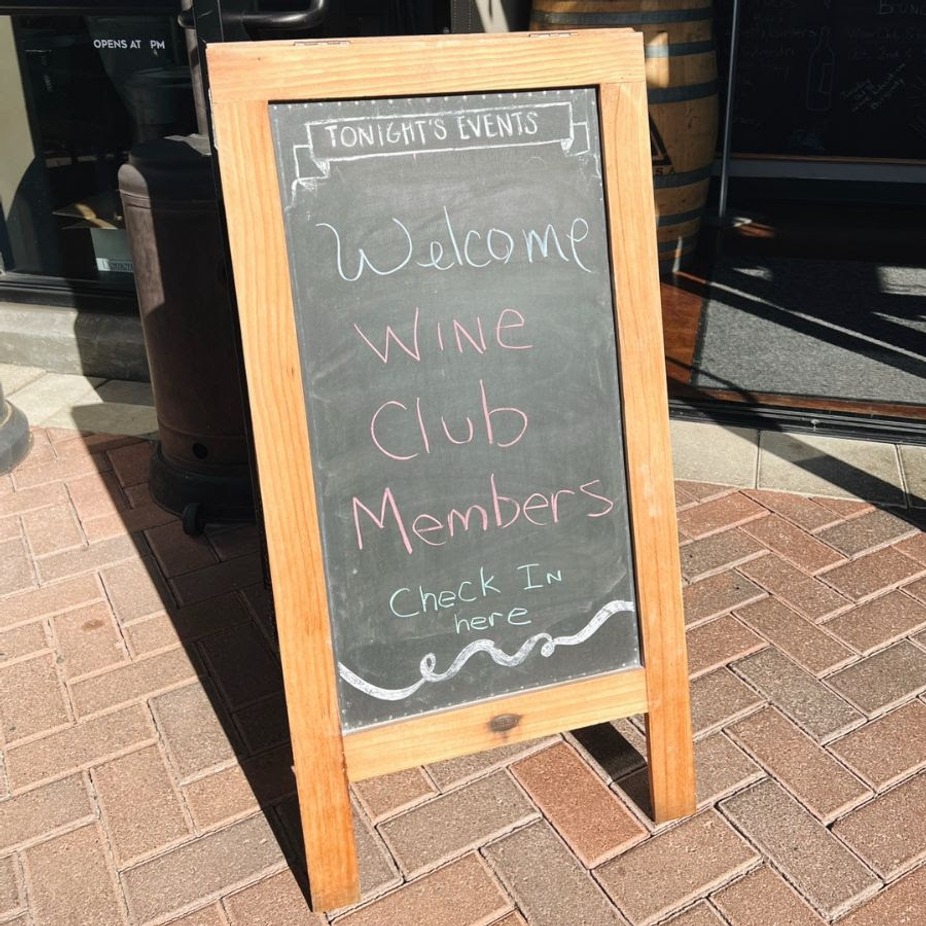 OPENS AT PM
TONIGHT'S EVENTS
Welcome
WINE
Club
Members
Check IN
here